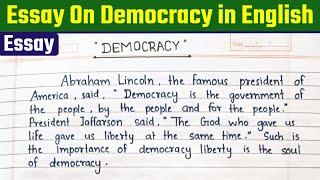 Essay On Democracy in English
Essay
"DEMOCRACY"
Abraham Lincoln, the famous president of
America, said, "Democracy is the government of
the people, by the people and for the people."
President Jaffarson said, "The God who gave us
life gave us liberty at the same time." Such is
the importance of democracy liberty is the soul
of democracy.